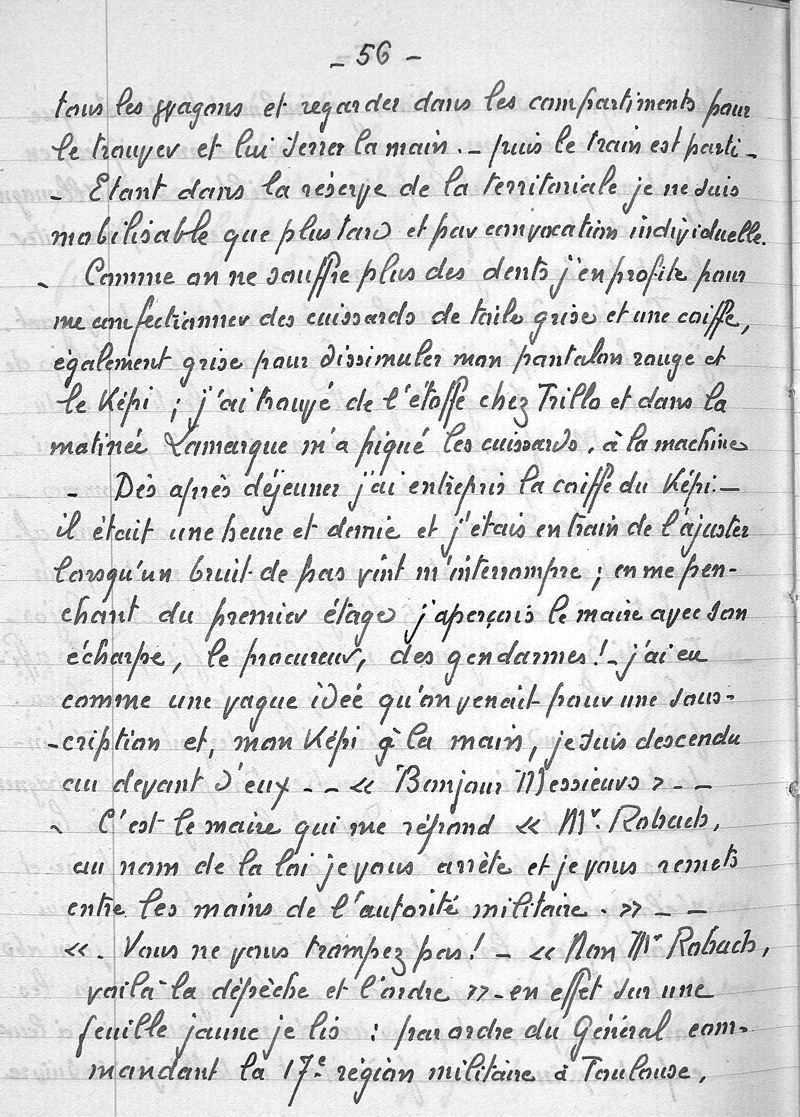 - 56 -
tous les wagons et regarder dans les compartiments pour
le trouver et lui serrer la main. - puis le train est parti -
- Etant dans la réserve de la territoriale je ne suis
mobilisable que plus tard et par convocation individuelle.
- Comme on ne souffre plus des dents j'en profite pour
me confectionner des cuissards de toile grise et une coiffe,
également grise pour dissimuler mon pantalon rouge et
le Képi ; j'ai trouvé de l'étoffe chez Trillo et dans la
matinée Lamarque m'a piqué les cuissards, à la machine
- Dès après déjeuner j'ai entrepris la coiffe du Képi. -
il était une heure et demie et j'étais en train de l'ajuster
lorsqu'un bruit de pas vint m'interrompre ; en me pen-
chant du premier étage j'aperçois le maire avec son
écharpe, le procureur, des gendarmes! - j'ai eu
comme une vague idée qu'on venait pour une sous-
-cription et, mon Képi à la main, je suis descendu
au devant d'eux - - « Bonjour Messieurs » - -
- C'est le maire qui me répond « Mr. Robach,
au nom de la loi je vous arrête et je vous remets
entre les mains de l'autorité militaire » - -
«. Vous ne vous trompez pas! - « Non Mr Robach,
voilà la dépèche et l'ordre » - en effet sur une
feuille jaune je lis : par ordre du Général com-
mandant la 17e région militaire à Toulouse,